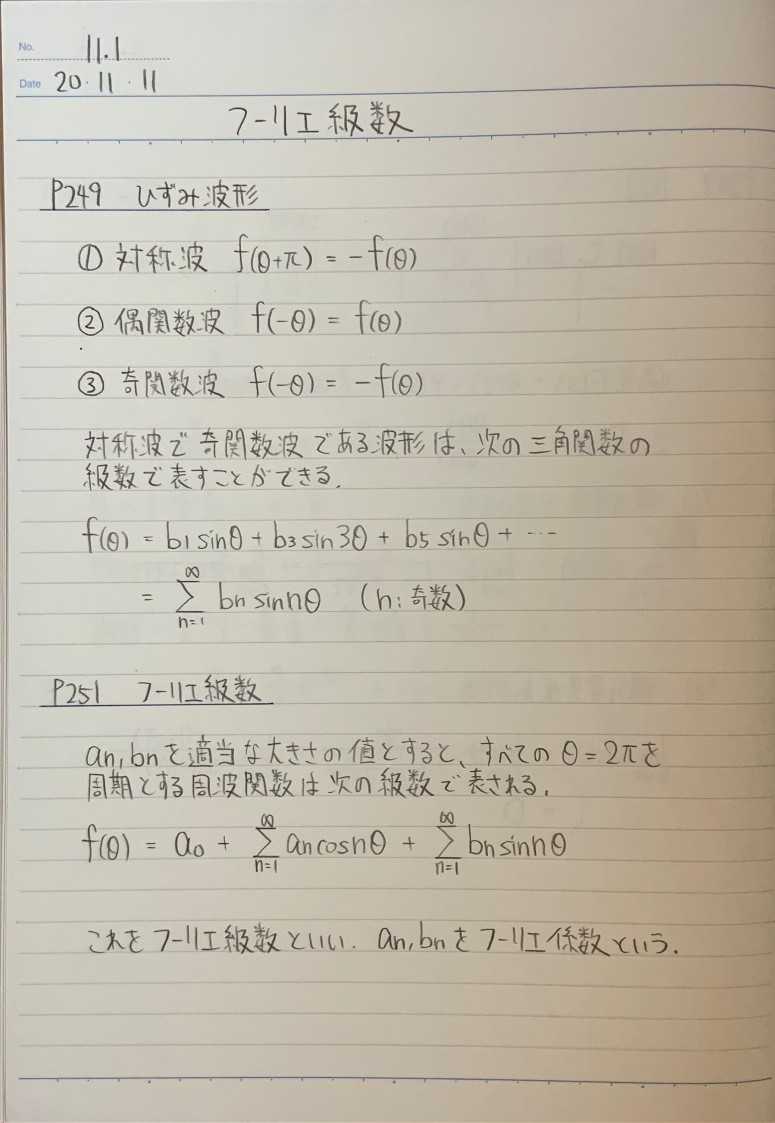 No. 11.1
Date 20・11・11
フーリエ級数
P249 ひずみ波形
① 対称波 f(θ+π) = -f(θ)
② 偶関数波 f(-θ) = f(θ)
③ 奇関数波 f(-θ) = -f(θ)
対称波で奇関数波である波形は、次の三角関数の
級数で表すことができる.
f(θ) = b1 sinθ + b3 sin3θ + b5 sinθ + …
= Σ_{n=1}^{∞} bn sin nθ (n:奇数)
P251 フーリエ級数
an, bnを適当な大きさの値とすると、すべてのθ=2πを
周期とする周波関数は次の級数で表される.
f(θ) = a0 + Σ_{n=1}^{∞} an cos nθ + Σ_{n=1}^{∞} bn sin nθ
これをフーリエ級数といい. an, bnをフーリエ係数という.